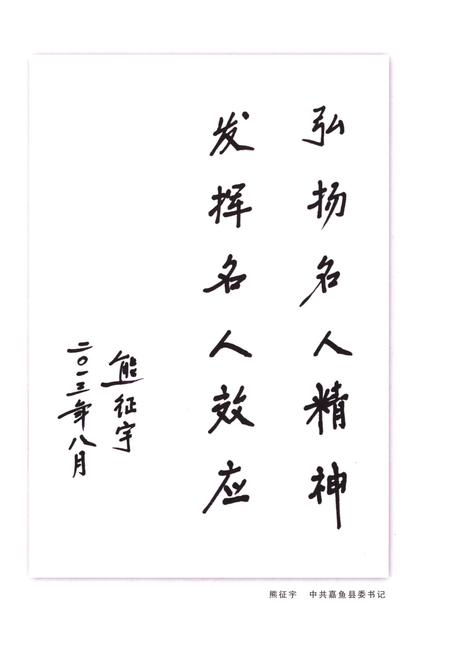 弘扬名人精神
发挥名人效应
熊征宇
二〇一三年八月
熊征宇　中共嘉鱼县委书记